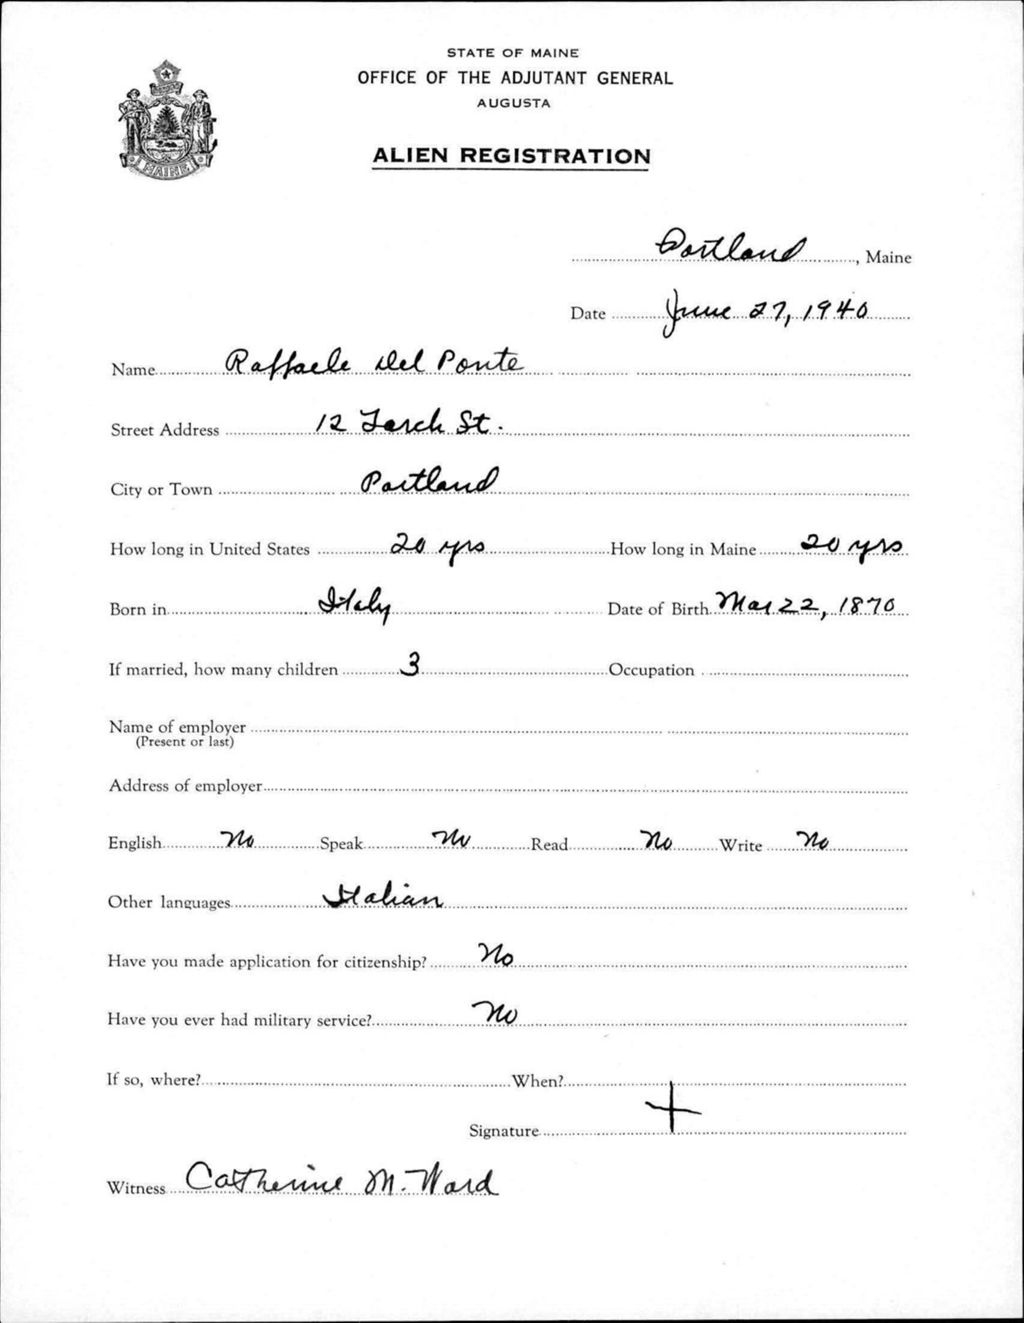 STATE OF MAINE
OFFICE OF THE ADJUTANT GENERAL
AUGUSTA
ALIEN REGISTRATION
MAINE
Portland, Maine
Date June 27, 1940
Name Raffaele Del Ponte
Street Address 12 St.
City or Town Portland
How long in United States 20 yrs How long in Maine 20 yrs
Born in Italy Date of Birth Mar 22, 1870
If married, how many children 3 Occupation
Name of employer
(Present or last)
Address of employer
English No Speak No Read No Write No
Other languages Italian
Have you made application for citizenship? No
Have you ever had military service? No
If so, where? When?
Signature +
Witness Catherine M. Ward